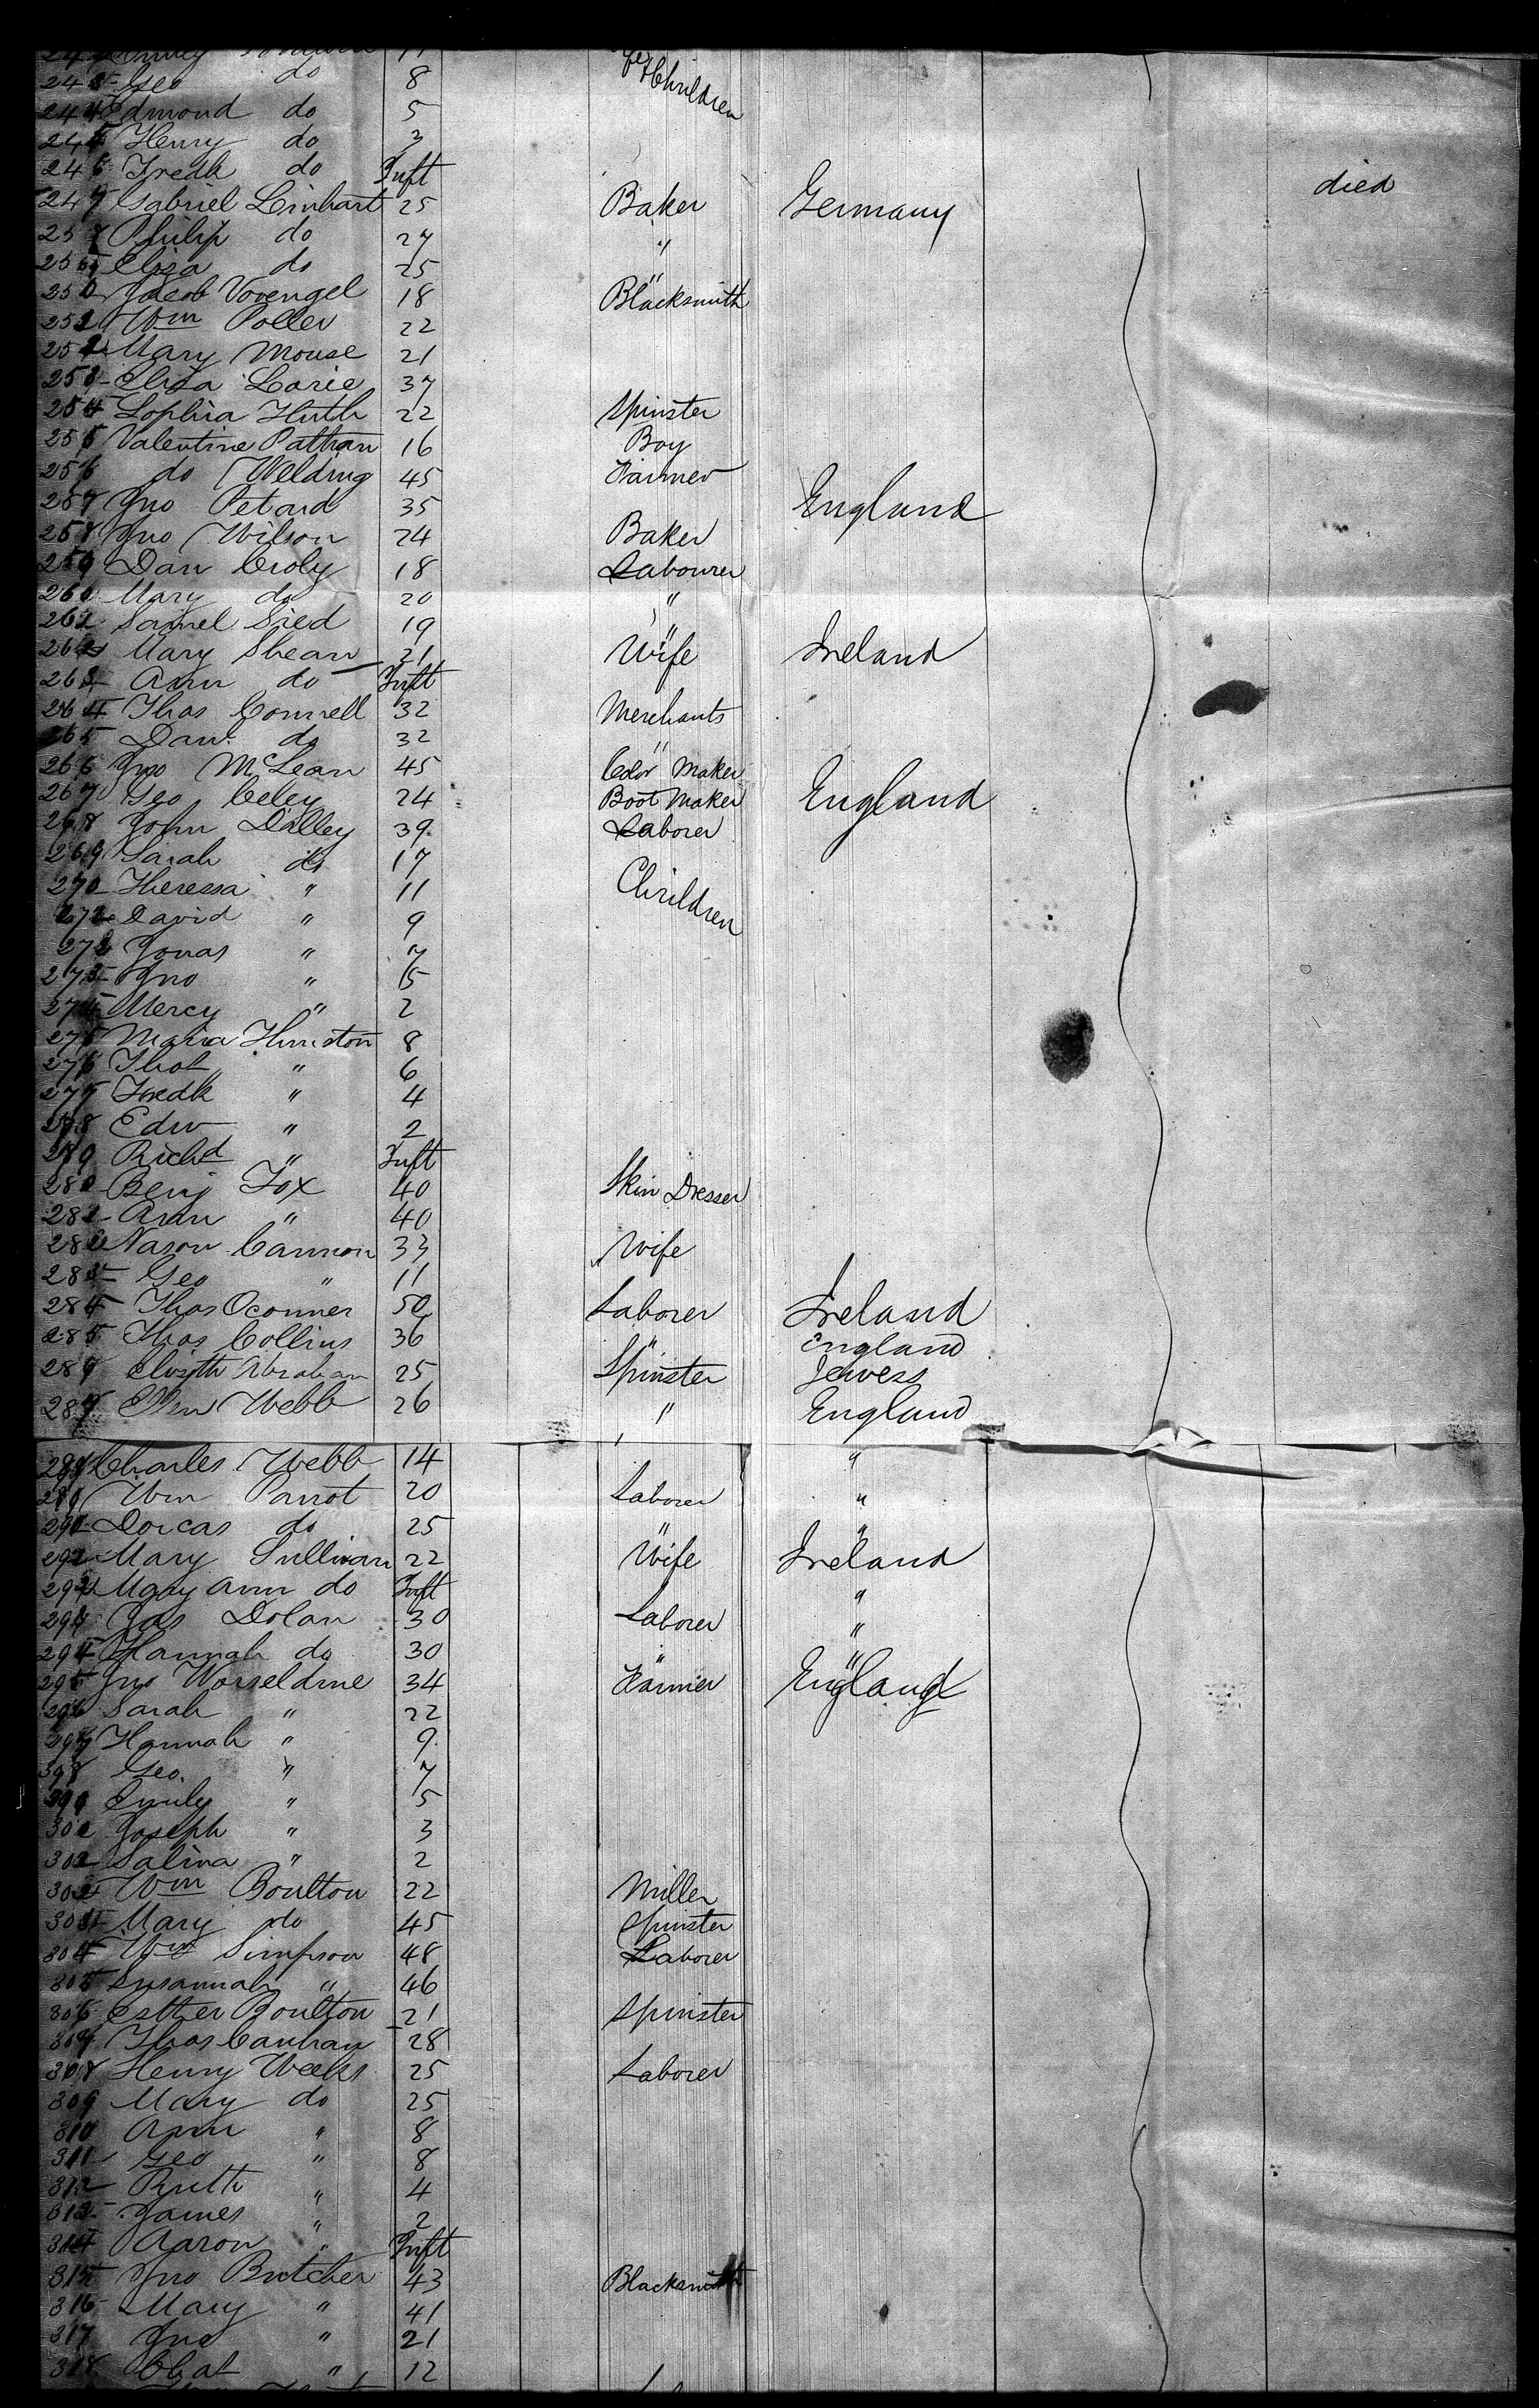 243 Geo do 8 Children
244 Edmond do 5
245 Henry do 3
246 Fredk do Inft died
247 Gabriel Linhart 25 Baker Germany
Philip do 27 "
Eliza do 25 "
250 Jacob Vovengel 18 Blacksmith
251 Wm Poller 22
252 Mary Mouse 21
253 Eliza Larie 37
254 Sophia Huth 22 Spinster
255 Valentine Pathan 16 Boy
256 do Welding 45 Farmer
257 Jno Petard 35 England
258 Jno Wilson 24 Baker
259 Dan Croly 18 Labourer
260 Mary do 20 "
261 Samel Sied 19 "
262 Mary Shean 21 Wife Ireland
263 Ann do Inft
264 Thos Connell 32 Merchants
265 Danl. do 32 "
266 Jno McLean 45 Maker
267 Geo Celey 24 Boot Maker England
268 John Dalley 39 Laborer
269 Sarah do 17
270 Theressa " 11 Children
271 David " 9
272 Jonas " 7
273 Jno " 5
274 Mercy " 2
275 Maria 8
276 Thos " 6
277 Fredk " 4
278 Edw " 2
279 Richd " Inft
280 Benj Fox 40 Skin Dresser
281 Ann " 40
282 Nason Cannon 33 Wife
283 Geo " 11
284 Thos Oconner 50 Laborer Ireland
285 Thos Collins 36 " England
286 Elizth Abraham 25 Spinster Jewess
287 Ellen Webb 26 " England
288 Charles Webb 14 "
289 Wm Parrot 20 Laborer "
290 Dorcas do 25 " "
291 Mary Sullivan 22 Wife Ireland
292 Mary Ann do Inft "
293 Jas Dolan 30 Laborer "
294 Hannah do 30 " "
295 Jno Worseldine 34 Farmer England
296 Sarah " 22
297 Hannah " 9
398 Geo. " 7
399 Emily " 5
300 Joseph " 3
301 Salina " 2
302 Wm Boulton 22 Miller
303 Mary do 45 Spinster
304 Wm Simpson 48 Laborer
305 Susannah " 46
306 Esther Boulton 21 Spinster
307 Thos Canhan 28
308 Henry Weeks 25 Laborer
309 Mary do 25
310 Ann " 8
311 Geo " 8
312 Ruth " 4
313 James " 2
314 Aaron " Inft
315 Jno Butcher 43 Blacksmith
316 Mary " 41
317 Jno " 21
318 Chat " 12